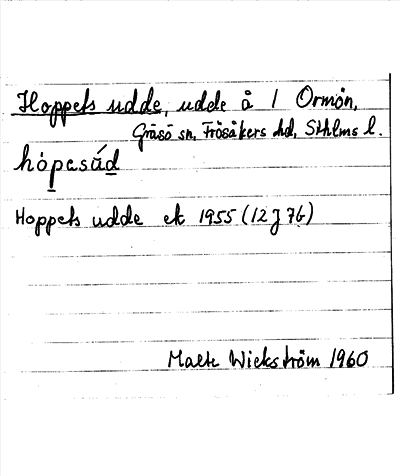 Hoppets udde, udde å 1 Ormön,
Gräsö sn, Frösåkers hd, Sthlms l.
hópesúd
Hoppets udde ek 1955 (12J7b)
Malte Wickström 1960